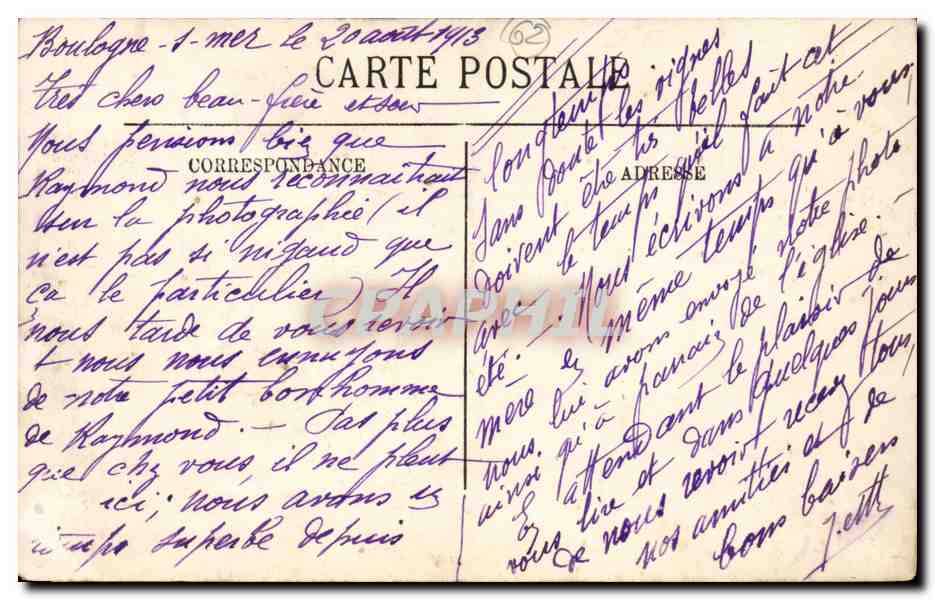 Boulogne-s-mer le 20 août 1913
62
CARTE POSTALE
Très chers beau-frère et sœur
CORRESPONDANCE
ADRESSE
Nous pensions bie que
Raymond nous reconnaitrait
sur la photographie (il
n'est pas si nigaud que
ça le particulier) Il
nous tarde de vous revoir
et nous nous ennuyons
de notre petit bonhomme
de Raymond. — Pas plus
que chez vous il ne pleut
ici; nous avons un
temps superbe depuis
longtemps
Sans doute les vignes
doivent être très belles
avec le temps qu'il fait cet
été. — Nous écrivons à notre
mère en même temps qu'à vous,
nous lui avons envoyé notre photo
ainsi qu'à parrain de l'église. —
En attendant le plaisir de
vous lire et dans quelques jours
de vous revoir, recevez tous
nos amitiés et de
bons baisers
CPAPHIL